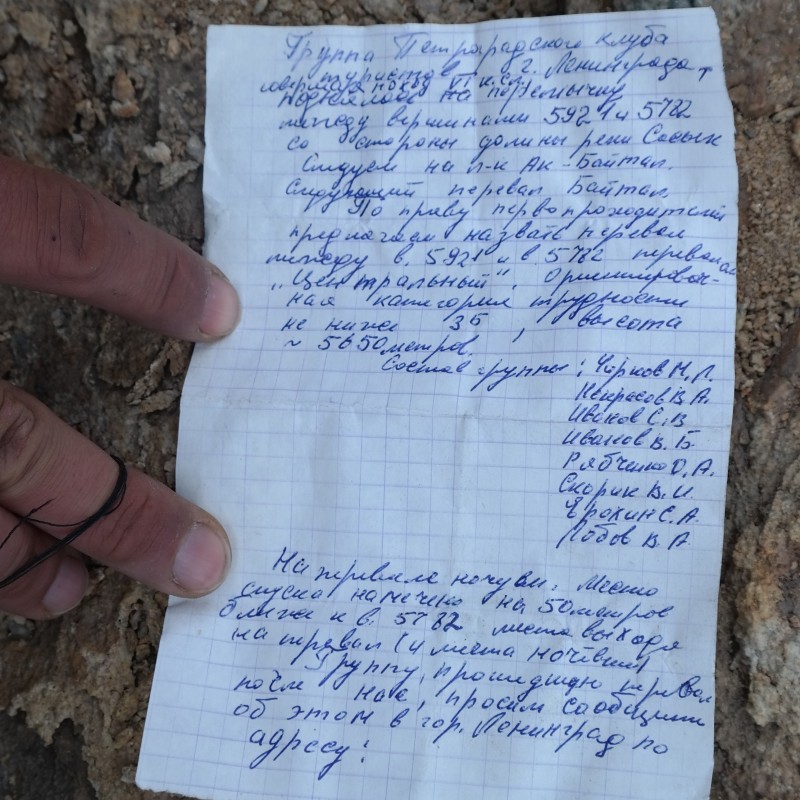 Группа Петроградского клуба
туристов г. Ленинграда,
совершая поход VI к.сл.,
поднялась на перемычку
между вершинами 5921 и 5782
со стороны долины реки Сосык
Следуем на л-к Ак-Байтал.
Следующий перевал Байтал.
По праву первопроходителей
предлагаем назвать перевал
между в. 5921 и в 5782 перевалом
„Центральный". Ориентировоч-
ная категория трудности
не ниже 3Б, высота
~ 5650 метров.
Состав группы: Чирков Н.Л.
Некрасов В.А.
Иванов С.В.
Иванов В.Б.
Рябченко О.А.
Скорик В.И.
Ярохин С.А.
Лобов В.А.
На перевале ночуем. Место
спуска намечено на 50 метров
ближе к в. 5782 места выхода
на перевал (и места ночёвки)
Группу, прошедшую перевал
после нас, просим сообщить
об этом в гор. Ленинград по
адресу: